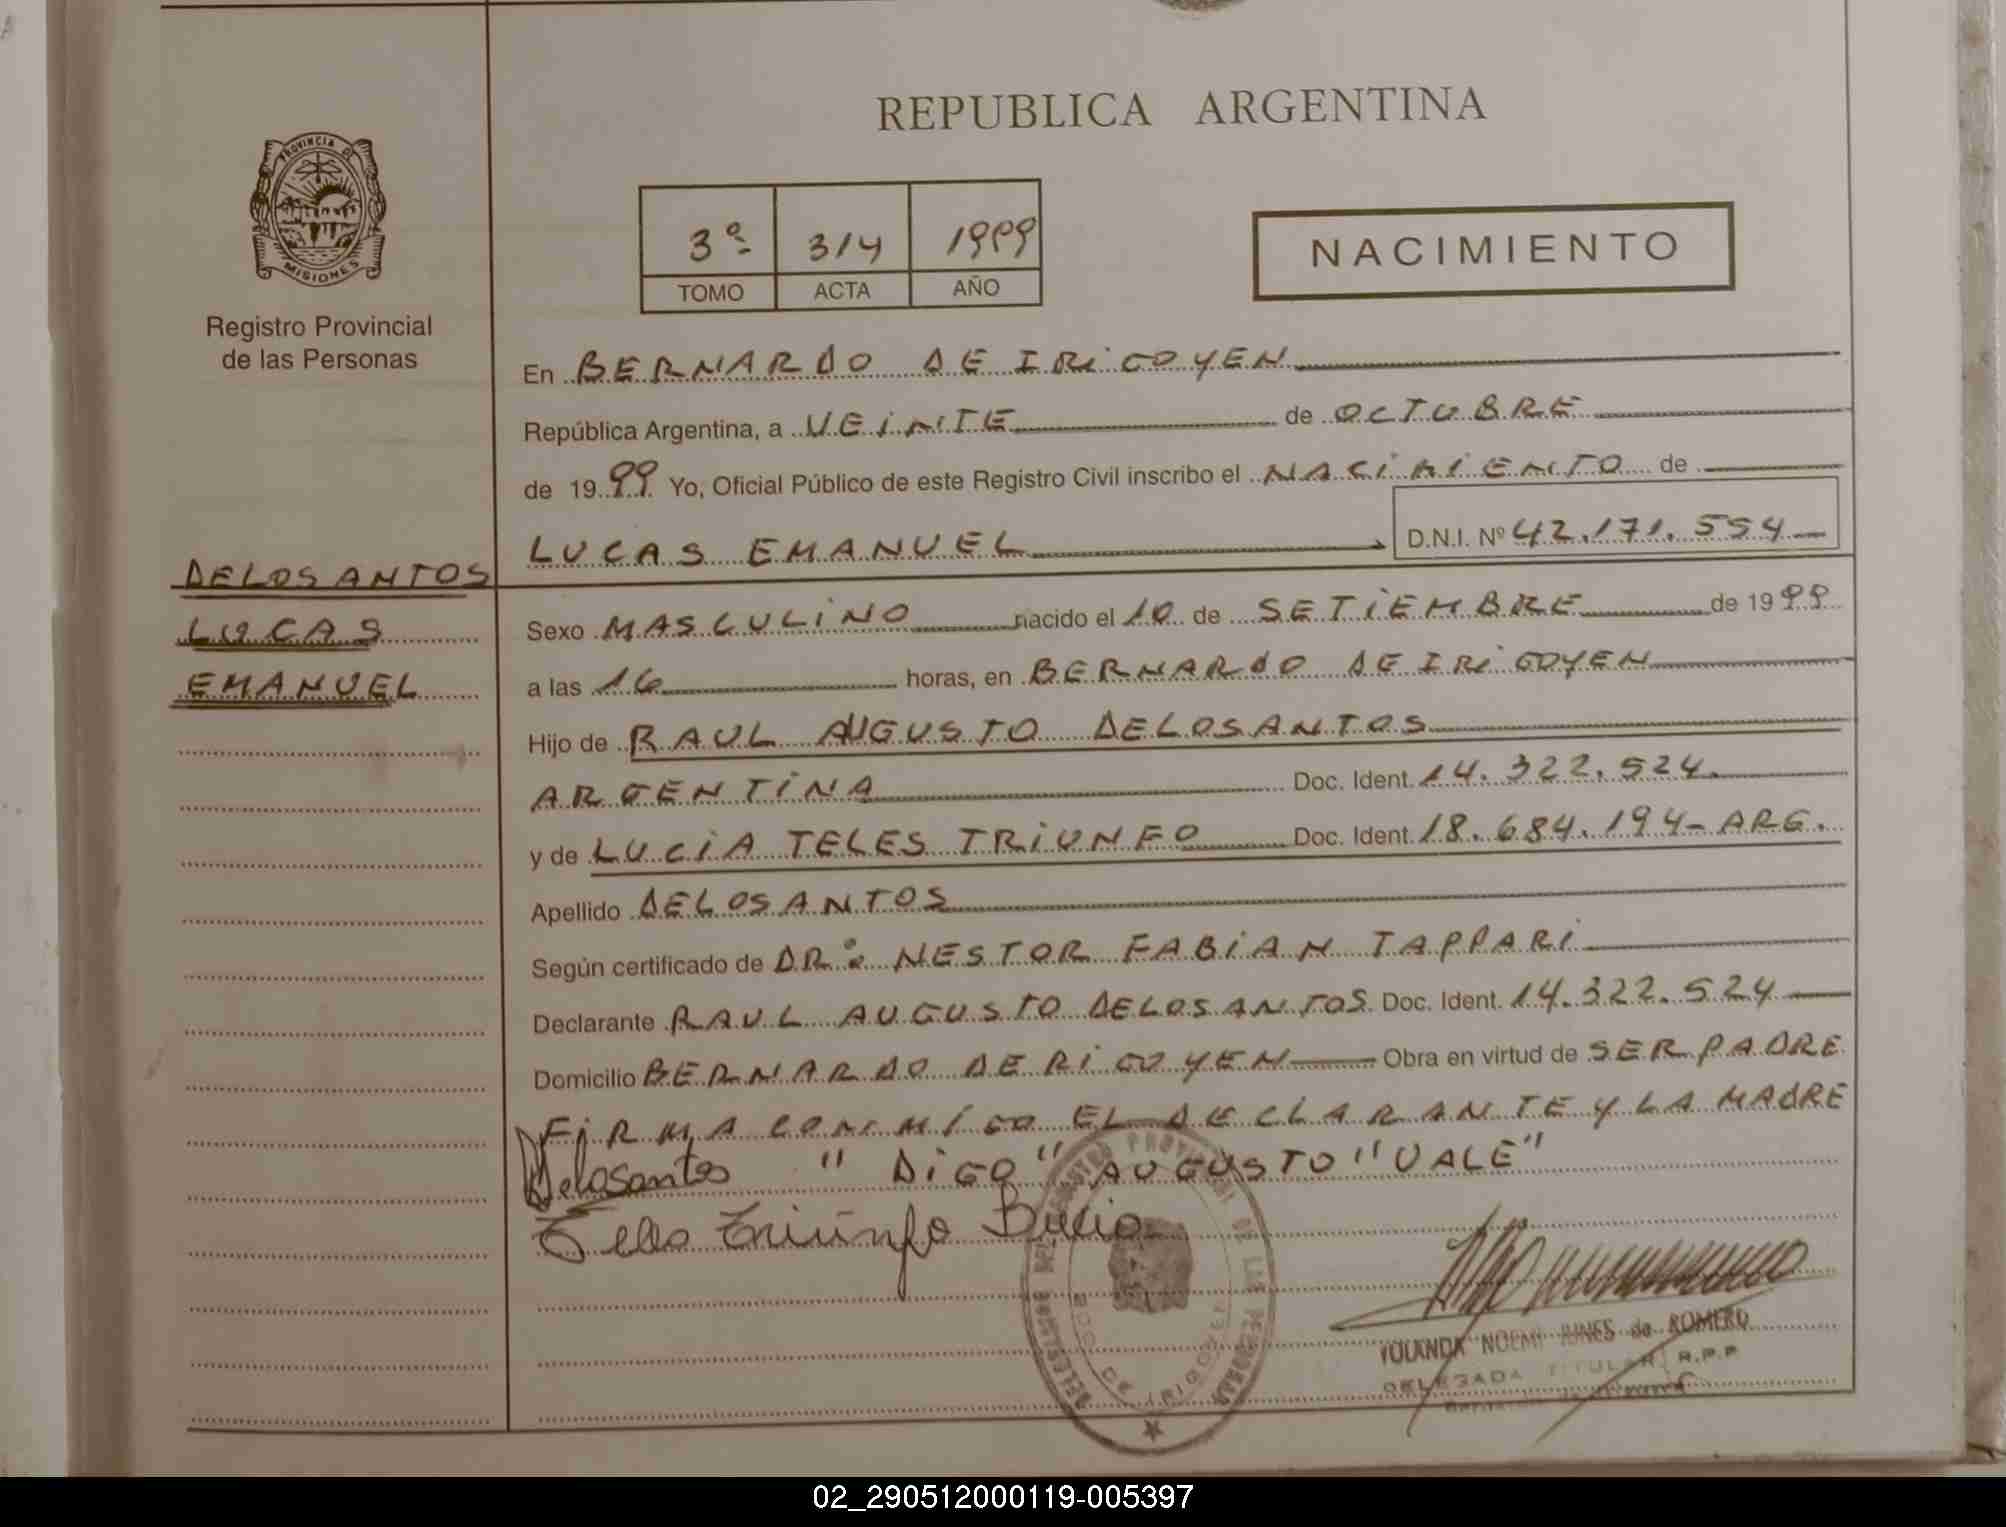 REPUBLICA ARGENTINA
PROVINCIA DE
MISIONES
Registro Provincial
de las Personas
3º 314 1999
TOMO ACTA AÑO
NACIMIENTO
En BERNARDO DE IRIGOYEN
República Argentina, a VEINTE de OCTUBRE
de 1999 Yo, Oficial Público de este Registro Civil inscribo el NACIMIENTO de
LUCAS EMANUEL D.N.I. Nº 42.171.554
DELOSANTOS
LUCAS
EMANUEL
Sexo MASCULINO nacido el 10 de SETIEMBRE de 1999
a las 16 horas, en BERNARDO DE IRIGOYEN
Hijo de RAUL AUGUSTO DELOSANTOS
ARGENTINA Doc. Ident. 14.322.524.
y de LUCIA TELES TRIUNFO Doc. Ident. 18.684.194- ARG.
Apellido DELOSANTOS
Según certificado de DR: NESTOR FABIAN TAPPARI
Declarante RAUL AUGUSTO DELOSANTOS Doc. Ident. 14.322.524
Domicilio BERNARDO DE RIGOYEN Obra en virtud de SER PADRE
FIRMA CONMIGO EL DECLARANTE Y LA MADRE
Delosantos "DIGO" AUGUSTO "VALE"
Teles Triunfo Lucia
YOLANDA NOEMI de ROMERO
DELEGADA TITULAR R.P.P
DE IRIGOYEN
02_290512000119-005397